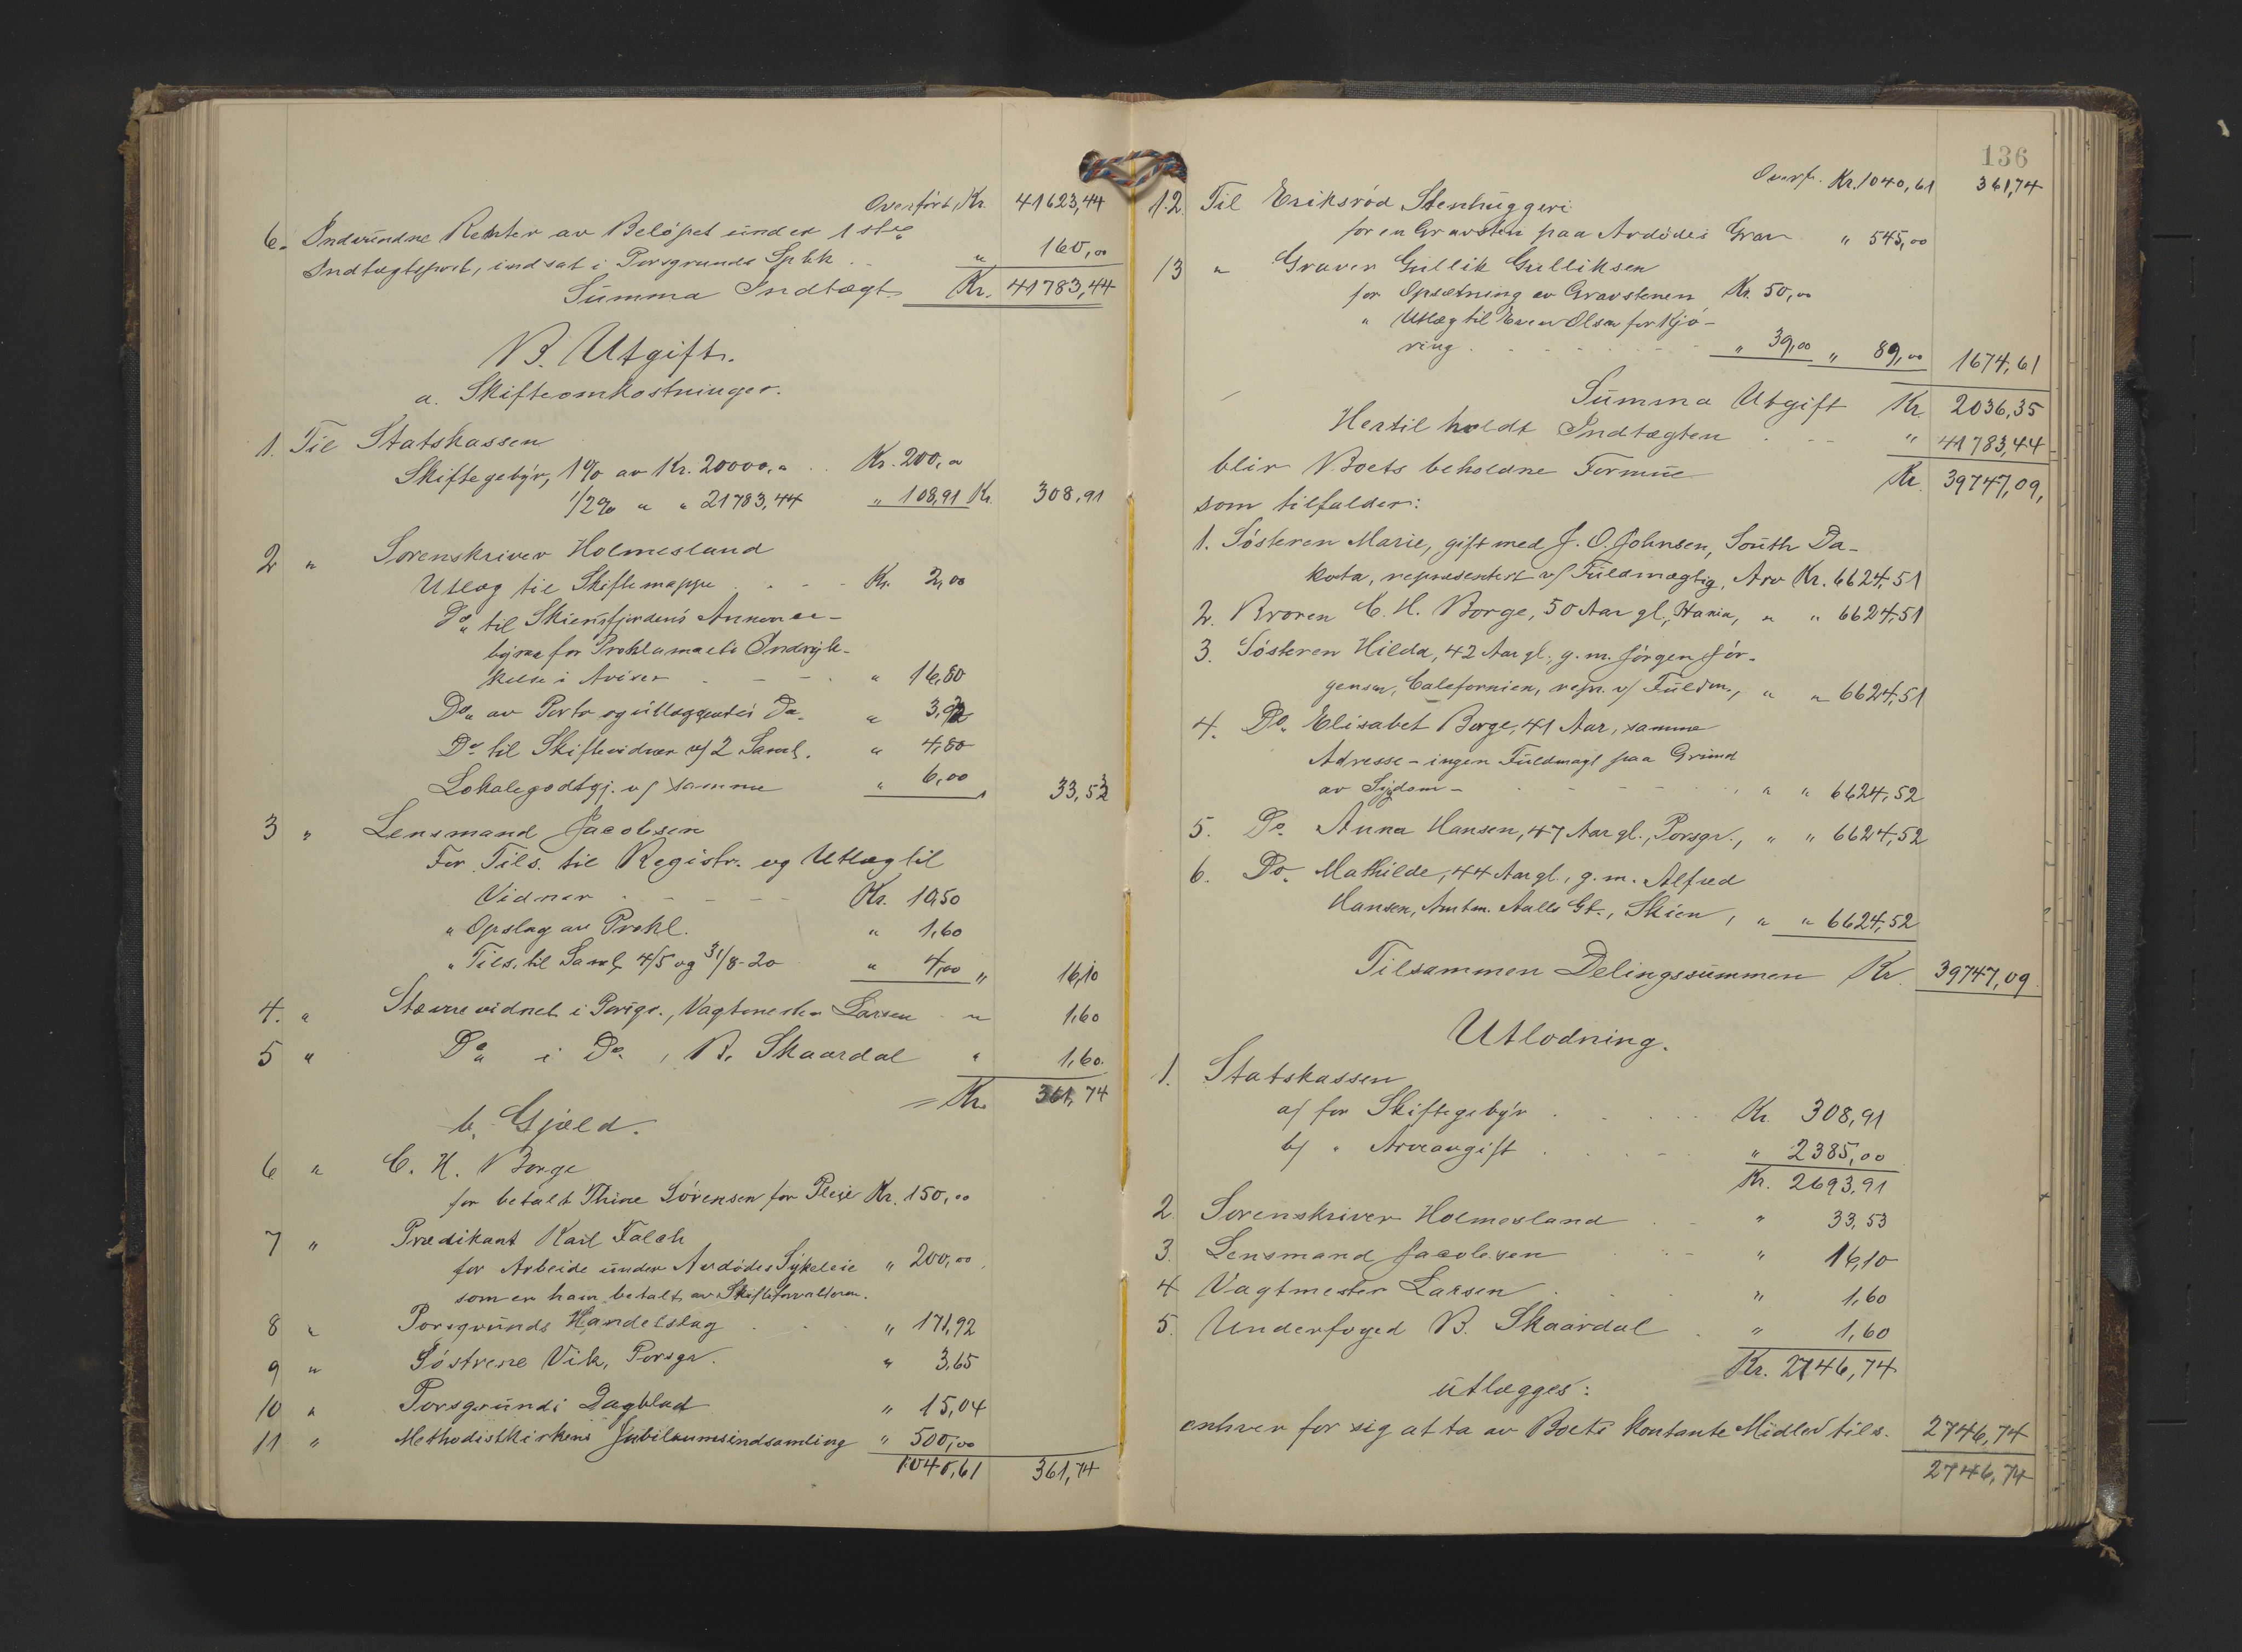 Overført, Kr. 41623,44
6. Indvundne Renter av Beløpet under 1ste
Indtægtspost, indsat i Porsgrunds Spbk . . " 160,00
Summa Indtægt Kr. 41783,44
B. Utgift.
a. Skifteomkostninger.
1. Til Statskassen
Skiftegebyr, 1% av Kr. 20000,„ . . Kr. 200,„
1/2% „ „ 21783,44 „ 108,91 Kr. 308,91
2 „ Sorenskriver Holmesland
Utlæg til Skiftemappe . . - - Kr. 2,00
Do „ til Skiensfjordens Annonce-
byraa for Proklamaets Indryk-
kelse i Aviser . - - - . „ 16,80
Do „ av Porto og utlæggende Do. „ 3,93
Do til Skiftevidner v/ 2 Saml. „ 4,80
Lokalegodtgj. v/ samme „ 6,00 „ 33,53
3 „ Lensmand Jacobsen
For Tils. til Registr. og Utlæg til
Vidner . - - - - Kr. 10,50
„ Opslag av Prokl. „ 1,60
„ Tils. til Saml. 4/5 og 31/8-20 „ 4,00 „ 16,10
4. „ Stævnevidnet i Porsgr., Vagtmester Larsen „ 1,60
5 „ Do „ i Do. , B. Skaardal „ 1,60.
= Kr. 361,74
b. Gjæld.
6 „ C. H. Borge
for betalt Thine Sørensen for Pleie Kr. 150,00
7 „ Prædikant Karl Falch
for Arbeide under Avdødes Sykeleie „ 200,00
som er ham betalt av Skifteforvalteren.
8 „ Porsgrunds Handelslag . . . „ 171,92
9 „ Søstrene Vik, Porsgr. „ 3,65
10 „ Porsgrunds Dagblad „ 15,04
11 „ Methodistkirkens Jubilæumsindsamling „ 500,00
1040,61 361,74
136
Overf. Kr. 1040,61 361,74
12. Til Eriksrød Stenhuggeri
for en Gravsten paa Avdødes Grav „ 545,00
13 „ Graver Gullik Gulliksen
for Opsætning av Gravstenen Kr. 50,00
„ Utlæg til Even Olsen for Kjø-
ring . - - - - - „ 39,00 „ 89,00 1674,61
Summa Utgift Kr. 2036,35
Hertil holdt Indtægten . - - „ 41783,44
blir Boets beholdne Formue Kr. 39747,09,
som tilfalder:
1. Søsteren Marie, gift med J. O. Johnsen, South Da-
kota, representert v/ Fuldmægtig, Arv Kr. 6624,51
2. Broren C. H. Borge, 50 Aar gl., „ „ 6624,51
3. Søsteren Hilda, 42 Aar gl., g. m. Jørgen Jør-
gensen, Calefornien, repr. v/ Fuldm., „ „ 6624,51
4. Do. Elisabet Borge, 41 Aar, samme
Adresse - ingen Fuldmagt paa Grund
av Sygdom - . - - - - , „ „ 6624,52
5. Do. Anna Hansen, 47 Aar gl., Porsgr., „ „ 6624,52
6. Do. Mathilde, 44 Aar gl., g. m. Alfred
Hansen, Amtm. Aalls Gt., Skien, „ „ 6624,52
Tilsammen Delingssummen Kr. 39747,09.
Utlodning.
1. Statskassen
a/ for Skiftegebyr . . . . . Kr. 308,91
b/ „ Arveavgift . . . - - „ 2385,00
Kr. 2693,91
2. Sorenskriver Holmesland . - „ 33,53
3. Lensmand Jacobsen . . - „ 16,10
4 Vagtmester Larsen . . . „ 1,60
5. Underfoged B. Skaardal . „ 1,60
Kr. 2746,74
utlægges:
enhver for sig at ta av Boets kontante Midler tils. 2746,74
2746,74